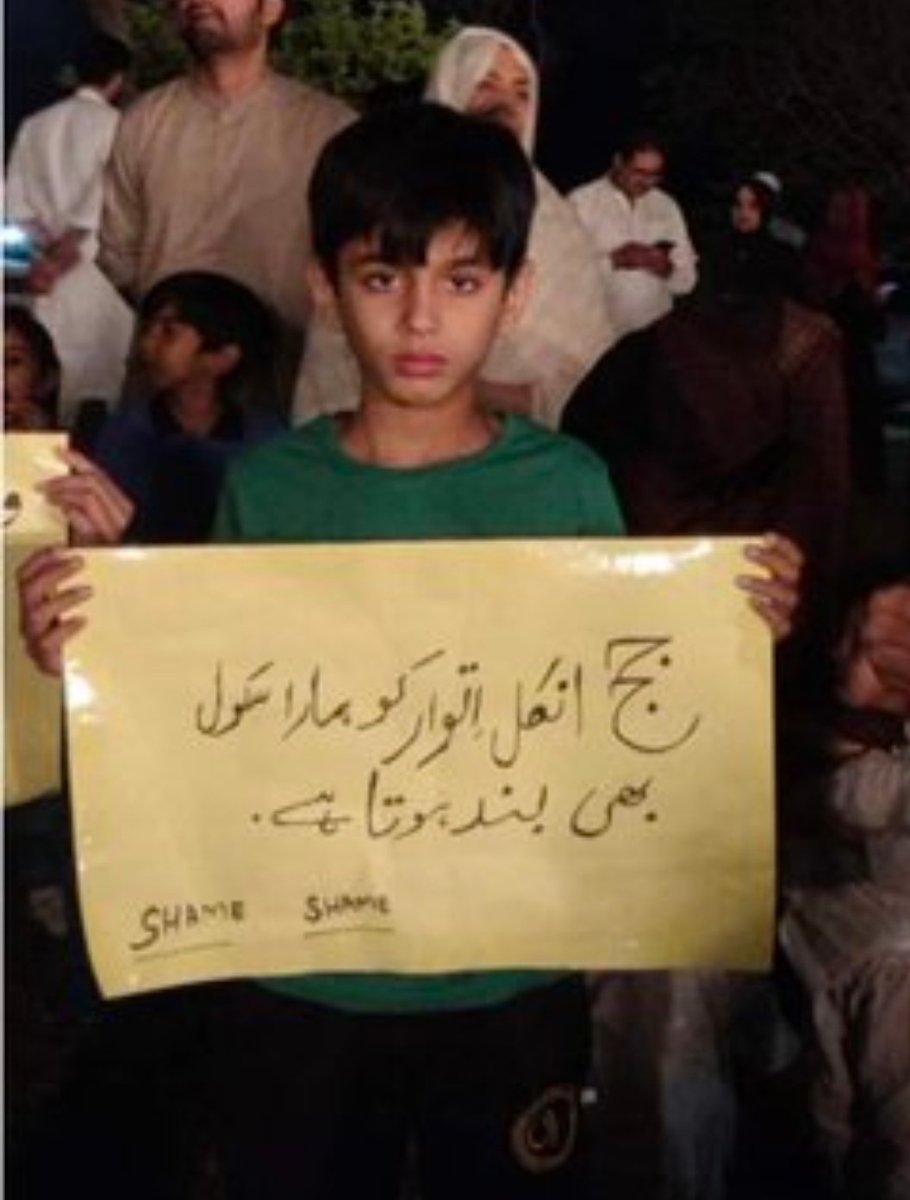 جج انکل اتوار کو ہمارا سکول
بھی بند ہوتا ہے۔
SHAME SHAME